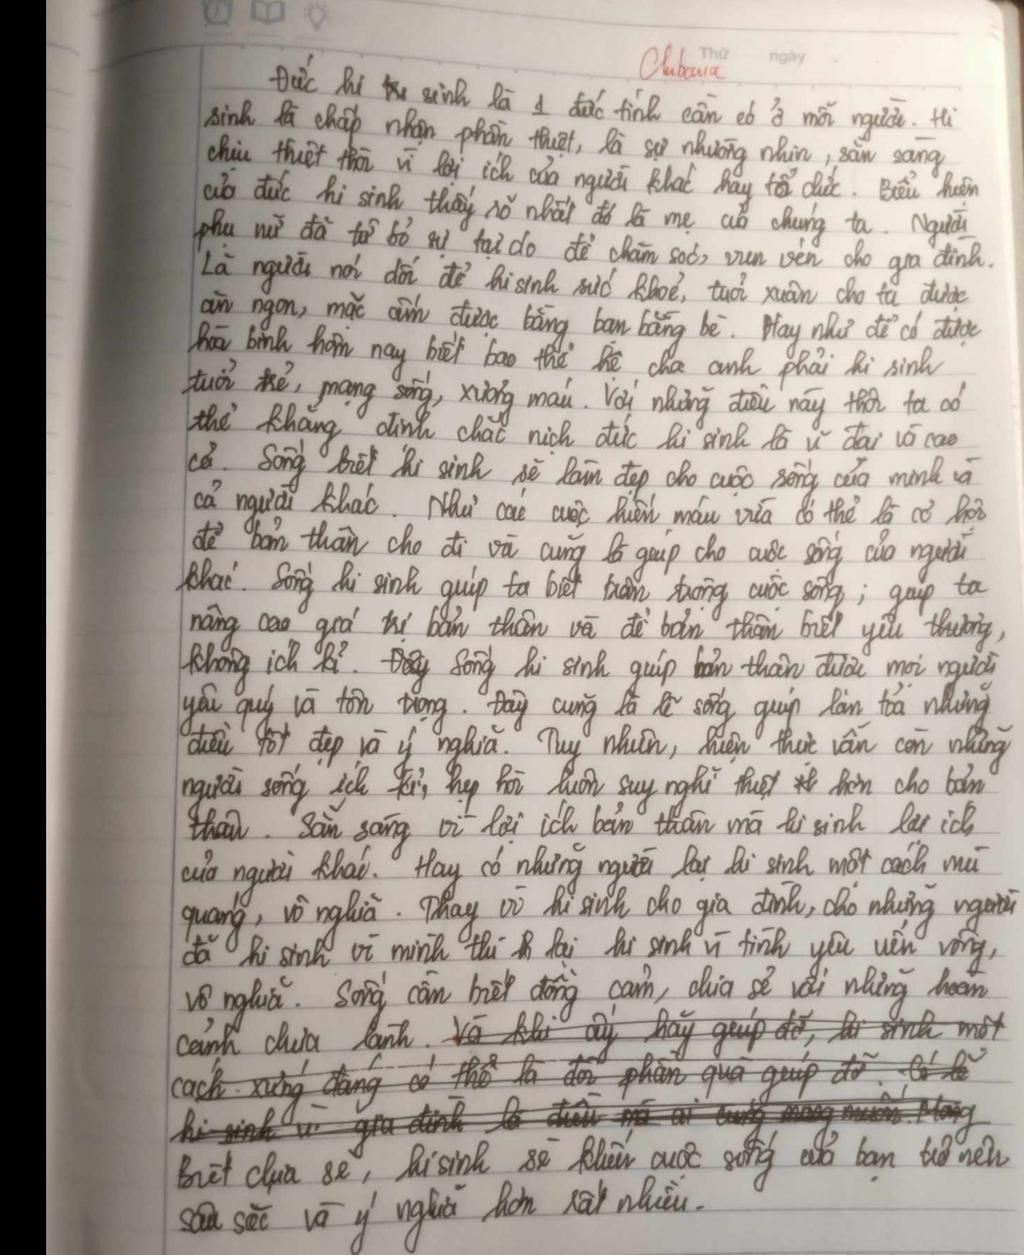 Thứ ngày
Chubaua
Đức hi sinh là 1 đức tính cần có ở mỗi người. Hi
sinh là chấp nhận phần thiệt, là sự nhường nhịn, sẵn sàng
chịu thiệt thòi vì lợi ích của người khác hay tổ chức. Biểu hiện
của đức hi sinh thấy rõ nhất đó là mẹ của chúng ta. Người
phụ nữ đã từ bỏ sự tự do để chăm sóc, vun vén cho gia đình.
Là người nói dối để hi sinh sức khoẻ, tuổi xuân cho ta được
ăn ngon, mặc ấm được bằng bạn bằng bè. Hay như để có được
hòa bình hôm nay biết bao thế hệ cha anh phải hi sinh
tuổi trẻ, mạng sống, xương máu. Với những điều này thôi ta có
thể khẳng định chắc nịch đức hi sinh là vĩ đại và cao
cả. Sống biết hi sinh sẽ làm đẹp cho cuộc sống của mình và
cả người khác. Như các cuộc hiến máu vừa có thể là cơ hội
để bản thân cho đi và cũng là giúp cho cuộc sống của người
khác. Sống hi sinh giúp ta biết trân trọng cuộc sống; giúp ta
nâng cao giá trị bản thân và để bản thân biết yêu thương,
không ích kỉ. Sống hi sinh giúp bản thân được mọi người
yêu quý và tôn trọng. Đây cũng là lẽ sống giúp lan toả những
điều tốt đẹp và ý nghĩa. Tuy nhiên, hiện thực vẫn còn những
người sống ích kỉ, hẹp hòi luôn suy nghĩ thiệt hơn cho bản
thân. Sẵn sàng vì lợi ích bản thân mà hi sinh lợi ích
của người khác. Hay có những người lại hi sinh một cách mù
quáng, vô nghĩa. Thay vì hi sinh cho gia đình, cho những người
đã hi sinh vì mình thì lại hi sinh vì tình yêu uển vông,
vô nghĩa. Sống cần biết đồng cảm, chia sẻ với những hoàn
cảnh chưa lành. Và khi ấy hãy giúp đỡ, hi sinh một
cách xứng đáng có thể là đôi phần quà giúp đỡ. Có lẽ
hi sinh vì gia đình là điều mà ai cũng mong muốn.
Biết chia sẻ, hi sinh sẽ khiến cuộc sống của bạn trở nên
sâu sắc và ý nghĩa hơn rất nhiều.